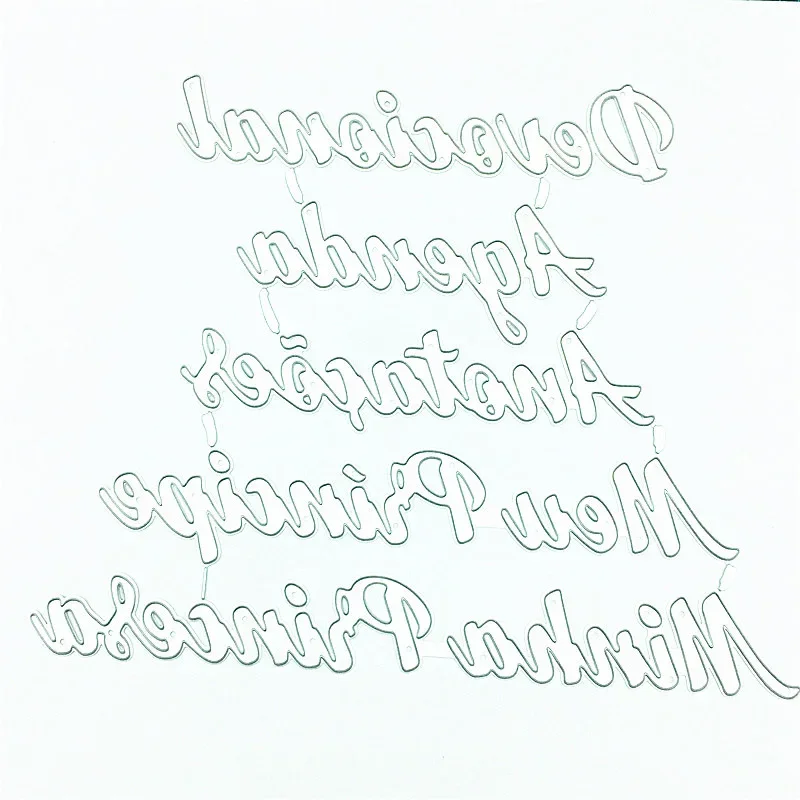 Devocional
Agenda
Anotações
Meu Príncipe
Minha Princesa